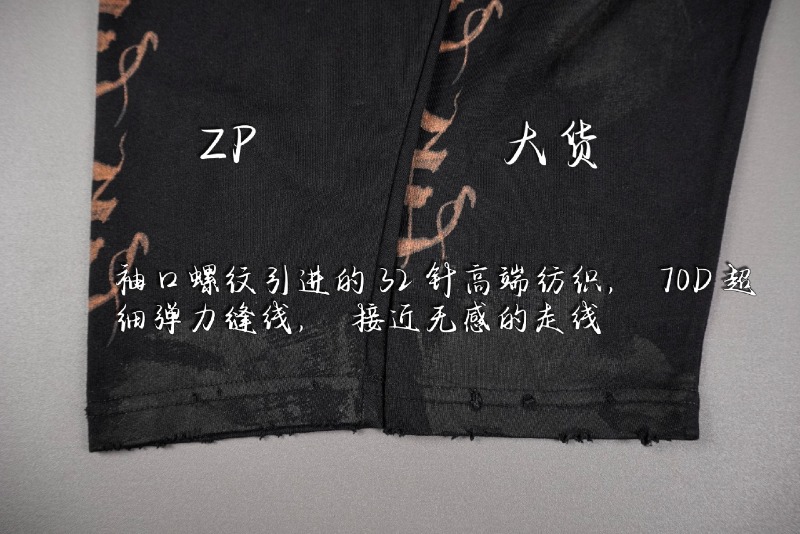 ZP
大货
袖口螺纹引进的32针高端纺织， 70D超
细弹力缝线， 接近无感的走线